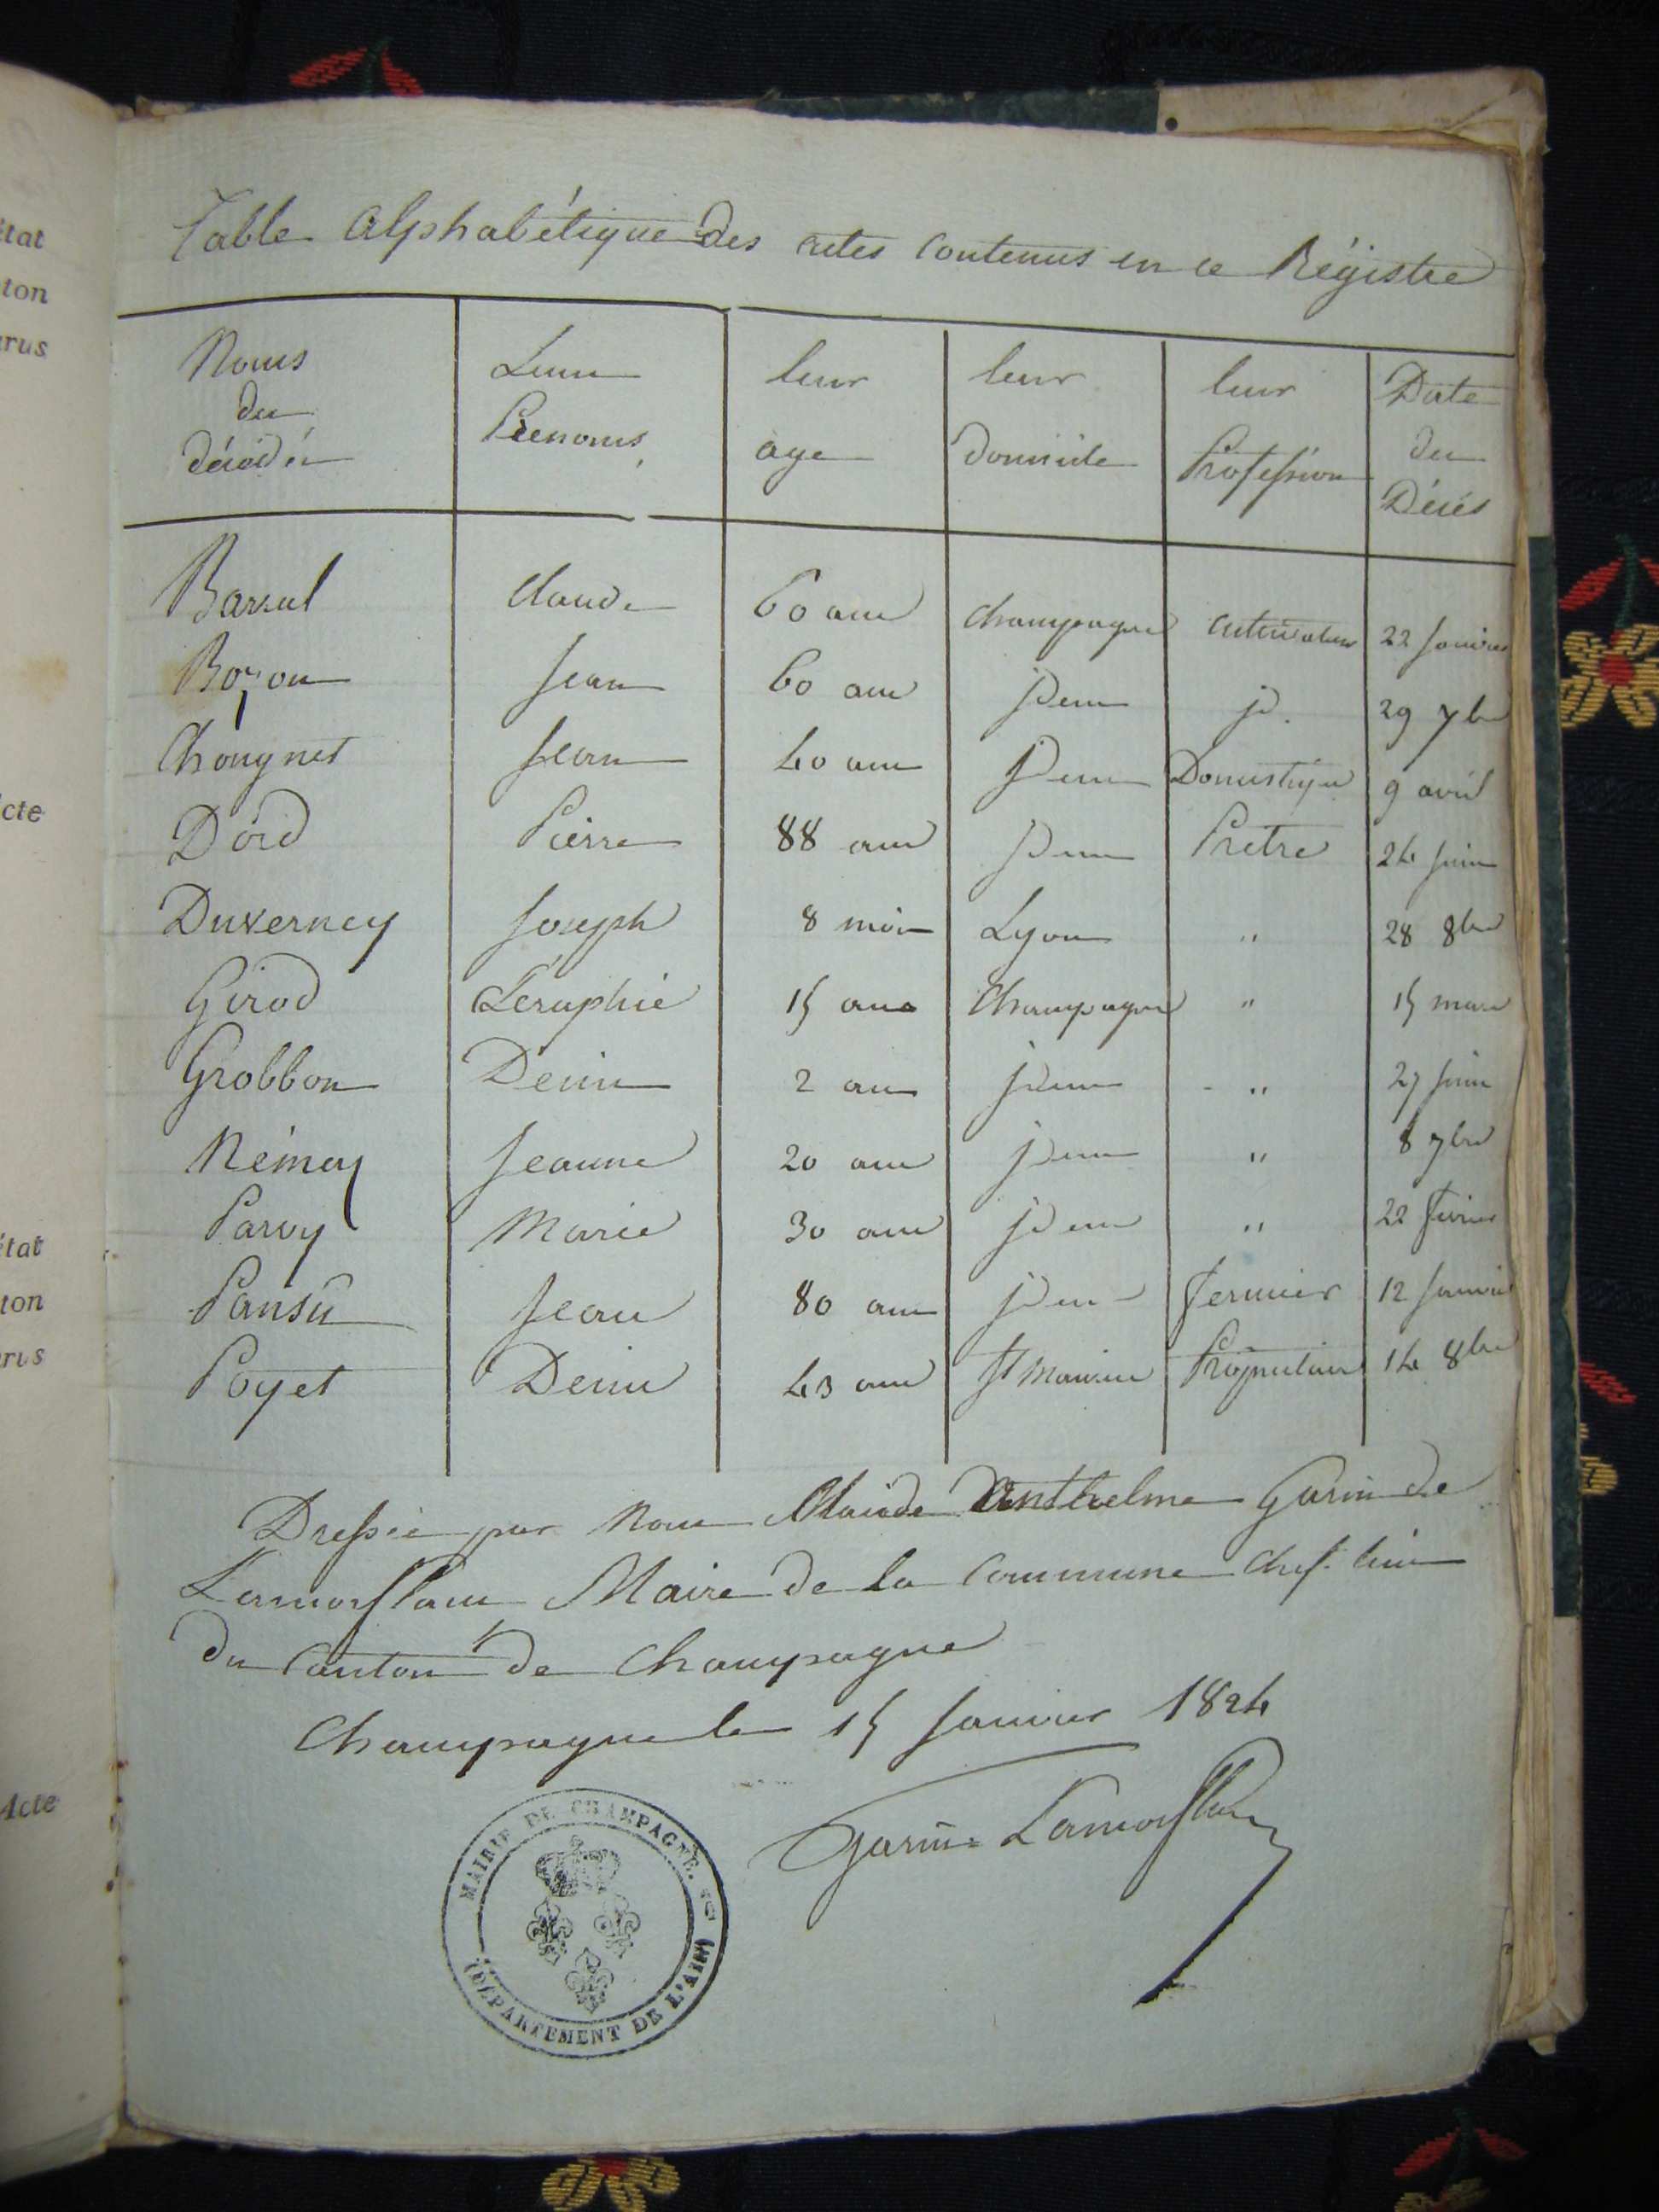 état
ton
arus
Acte
état
ton
arus
Acte
Table Alphabétique des actes contenus en ce Régistre
Noms des décédés | Leurs Prenoms | leur age | leur domicile | leur Profession | Date du Décés
Claude 60 ans Champagne cultivateur 22 Janvier
Bozon Jean 60 ans idem id. 29 7bre
Chougnet Jean 40 ans idem Domestique 9 avril
Pierre 88 ans idem Prêtre 24 Juin
Duverney Joseph 8 mois Lyon " 28 8bre
Girod Séraphie 15 ans Champagne " 15 mars
Grobbon Denis 2 ans idem " 27 Juin
Rémey Jeanne 20 ans idem " 8 7bre
Parvy Marie 30 ans idem " 22 février
Pansu Jean 80 ans idem fermier 12 Janvier
Poyet Denis 43 ans St Maurice Propriétaire 14 8bre
Dressé par Nous Claude Anthelme Garin de
Lamorflan Maire de la Commune chef-lieu
du Canton de Champagne
Champagne le 15 Janvier 1824
Garin Lamorflan
MAIRIE DE CHAMPAGNE.
(DÉPARTEMENT DE L'AIN)